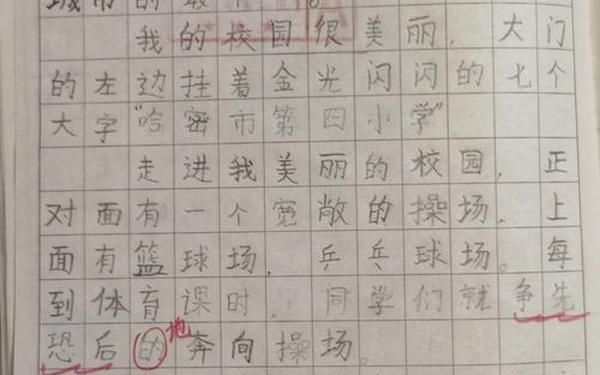 城市的最
我的校园很美丽，大门
的左边挂着金光闪闪的七个
大字“哈密市第四小学”
走进我美丽的校园，正
对面有一个宽敞的操场，上
面有篮球场，乒乓球场。每
到体育课时，同学们就争先
恐后的地奔向操场。